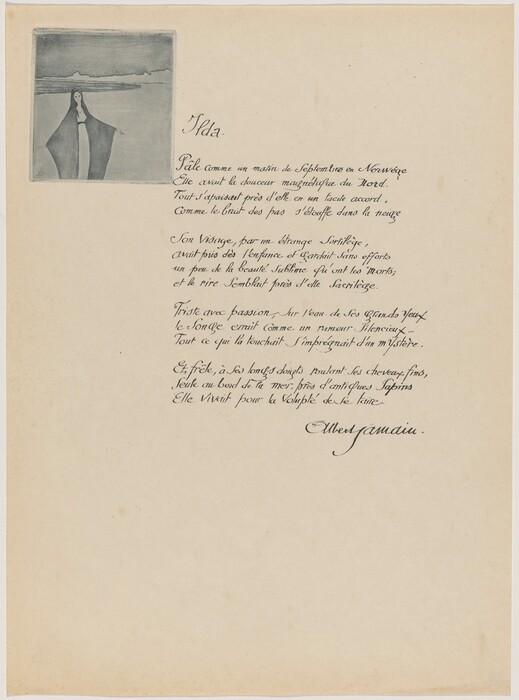 Ilda.
Pâle comme un matin de Septembre en Norwège
Elle avait la douceur magnétique du Nord.
Tout s'apaisait près d'elle en un tacite accord,
Comme le bruit des pas s'étouffe dans la neige
Son Visage, par un étrange Sortilège,
avait pris dès l'enfance et gardait Sans efforts
un peu de la beauté Sublime qu'ont les Morts;
et le rire Semblait près d'elle Sacrilège.
Triste avec passion, Sur l'eau de Ses grands Yeux
le Songe errait comme un rameur Silencieux —
Tout ce qui la touchait S'imprégnait d'un mYstère.
Et, frêle, à Ses longs doigts roulant Ses cheveux fins,
Seule au bord de la mer, près d'antiques Sapins
Elle Vivait pour la Volupté de Se taire
Albert Samain.